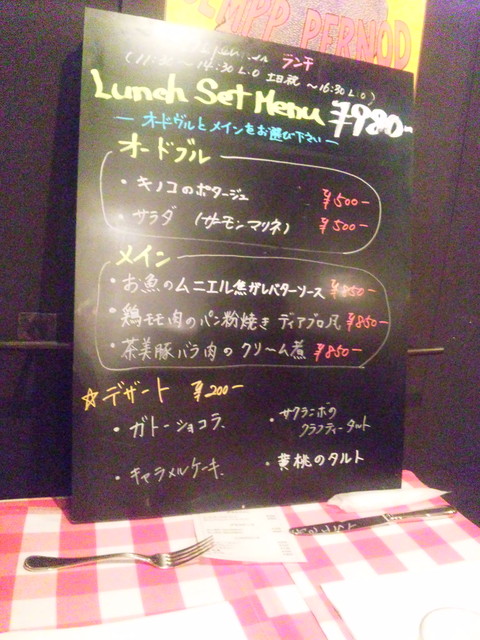 PERNOD
ランチ
(11:30 〜 14:30 L.O 土日祝 〜16:30 L.O)
Lunch Set Menu ¥980-
ー オードヴルとメインをお選び下さい ー
オードブル
・キノコのポタージュ ¥500-
・サラダ (サーモンマリネ) ¥500-
メイン
・お魚のムニエル焦がしバターソース ¥850-
・鶏モモ肉のパン粉焼き ディアブロ風 ¥850-
・茶美豚バラ肉のクリーム煮 ¥850-
☆デザート ¥200-
・ガトーショコラ、
・サクランボの
クラフティータルト
・キャラメルケーキ、
・黄桃のタルト